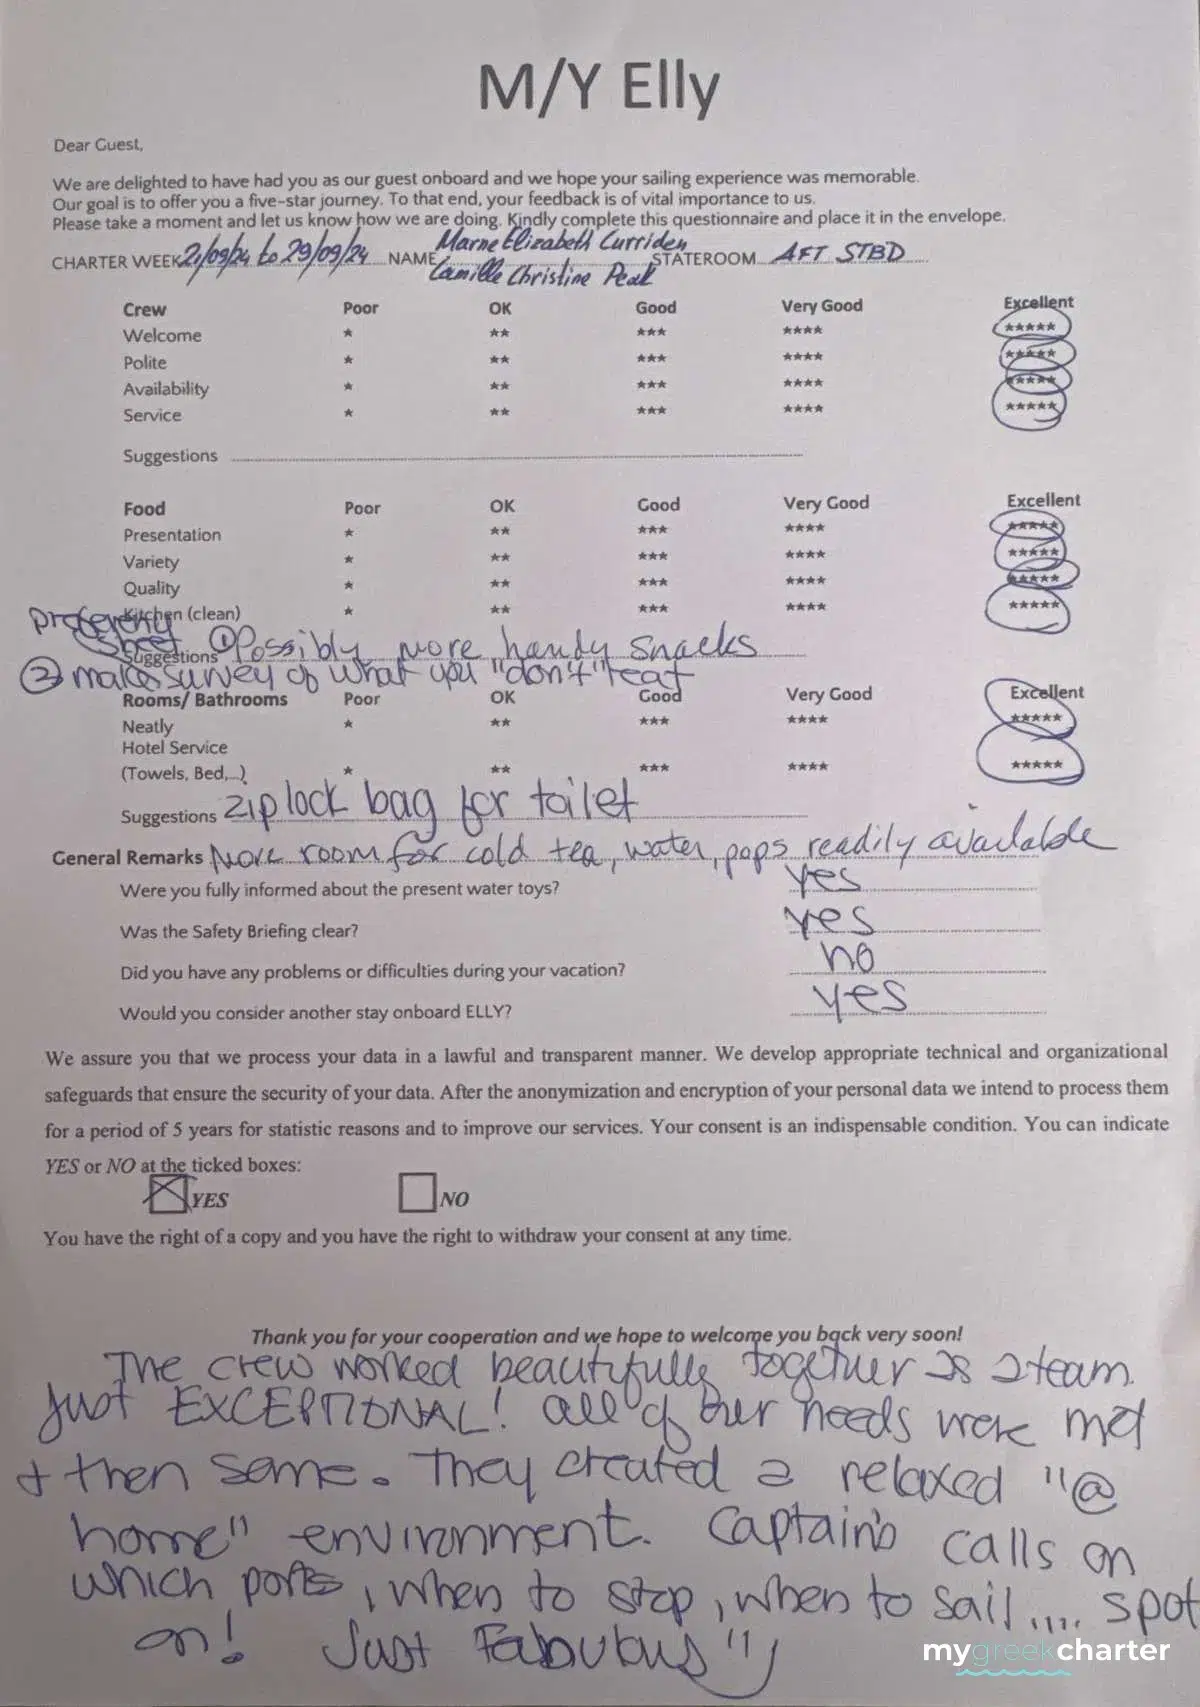 M/Y Elly
Dear Guest,
We are delighted to have had you as our guest onboard and we hope your sailing experience was memorable.
Our goal is to offer you a five-star journey. To that end, your feedback is of vital importance to us.
Please take a moment and let us know how we are doing. Kindly complete this questionnaire and place it in the envelope.
Marne Elizabeth Curriden
CHARTER WEEK 21/09/24 to 29/09/24 NAME STATEROOM AFT STBD
Camille Christine Peak
Crew Poor OK Good Very Good Excellent
Welcome * ** *** **** *****
Polite * ** *** **** *****
Availability * ** *** **** *****
Service * ** *** **** *****
Suggestions
Food Poor OK Good Very Good Excellent
Presentation * ** *** **** *****
Variety * ** *** **** *****
Quality * ** *** **** *****
Kitchen (clean) * ** *** **** *****
sheet
Suggestions ① Possibly more handy snacks
② make survey of what you "don't" eat
Rooms/ Bathrooms Poor OK Good Very Good Excellent
Neatly * ** *** **** *****
Hotel Service
(Towels, Bed,...) * ** *** **** *****
Suggestions ziplock bag for toilet
General Remarks More room for cold tea, water, pops readily available
Were you fully informed about the present water toys? yes
Was the Safety Briefing clear? yes
Did you have any problems or difficulties during your vacation? no
Would you consider another stay onboard ELLY? yes
We assure you that we process your data in a lawful and transparent manner. We develop appropriate technical and organizational
safeguards that ensure the security of your data. After the anonymization and encryption of your personal data we intend to process them
for a period of 5 years for statistic reasons and to improve our services. Your consent is an indispensable condition. You can indicate
YES or NO at the ticked boxes:
YES NO
You have the right of a copy and you have the right to withdraw your consent at any time.
Thank you for your cooperation and we hope to welcome you back very soon!
The crew worked beautifully together as a team.
Just EXCEPTIONAL! All of our needs were met
+ then some. They created a relaxed "@
home" environment. Captain's calls on
which ports, when to stop, when to sail.... spot
on! Just Fabulous"
mygreekcharter